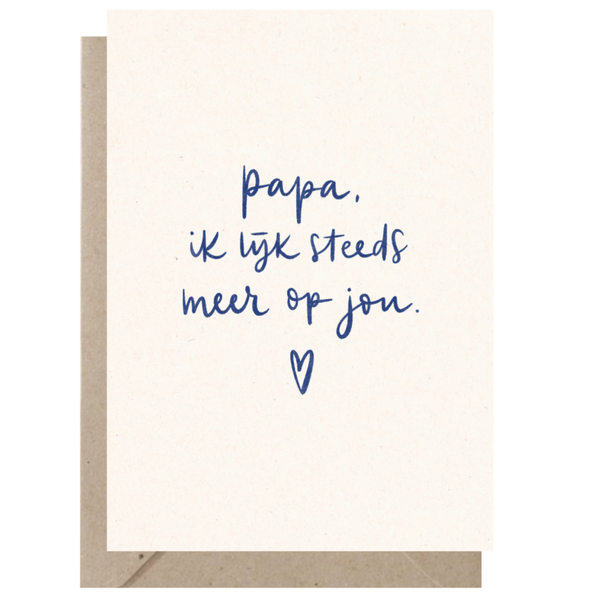 papa,
ik lijk steeds
meer op jou.